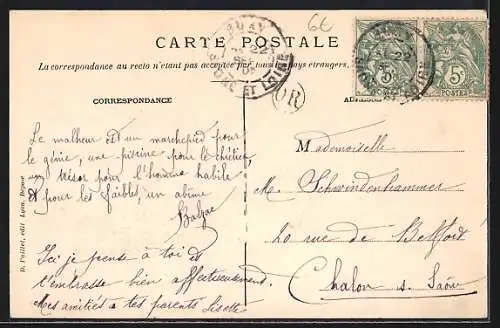 6€
CARTE POSTALE
La correspondance au recto n'étant pas acceptée par tous les pays étrangers,
SAÔNE ET LOIRE
OR
5c
POSTES
5c
CORRESPONDANCE
Le malheur est un marchepied pour
le génie, une piscine pour le chrétien,
un trésor pour l'homme habile
& pour les faibles, un abîme
Balzac
Ici je pense à toi et
t'embrasse bien affectueusement.
Mes amitiés à tes parents Lisette
Mademoiselle
M. Schwindenhammer
20 rue de Belfort
Chalon s. Saône
B. Poillot, édit Lyon. Dépose